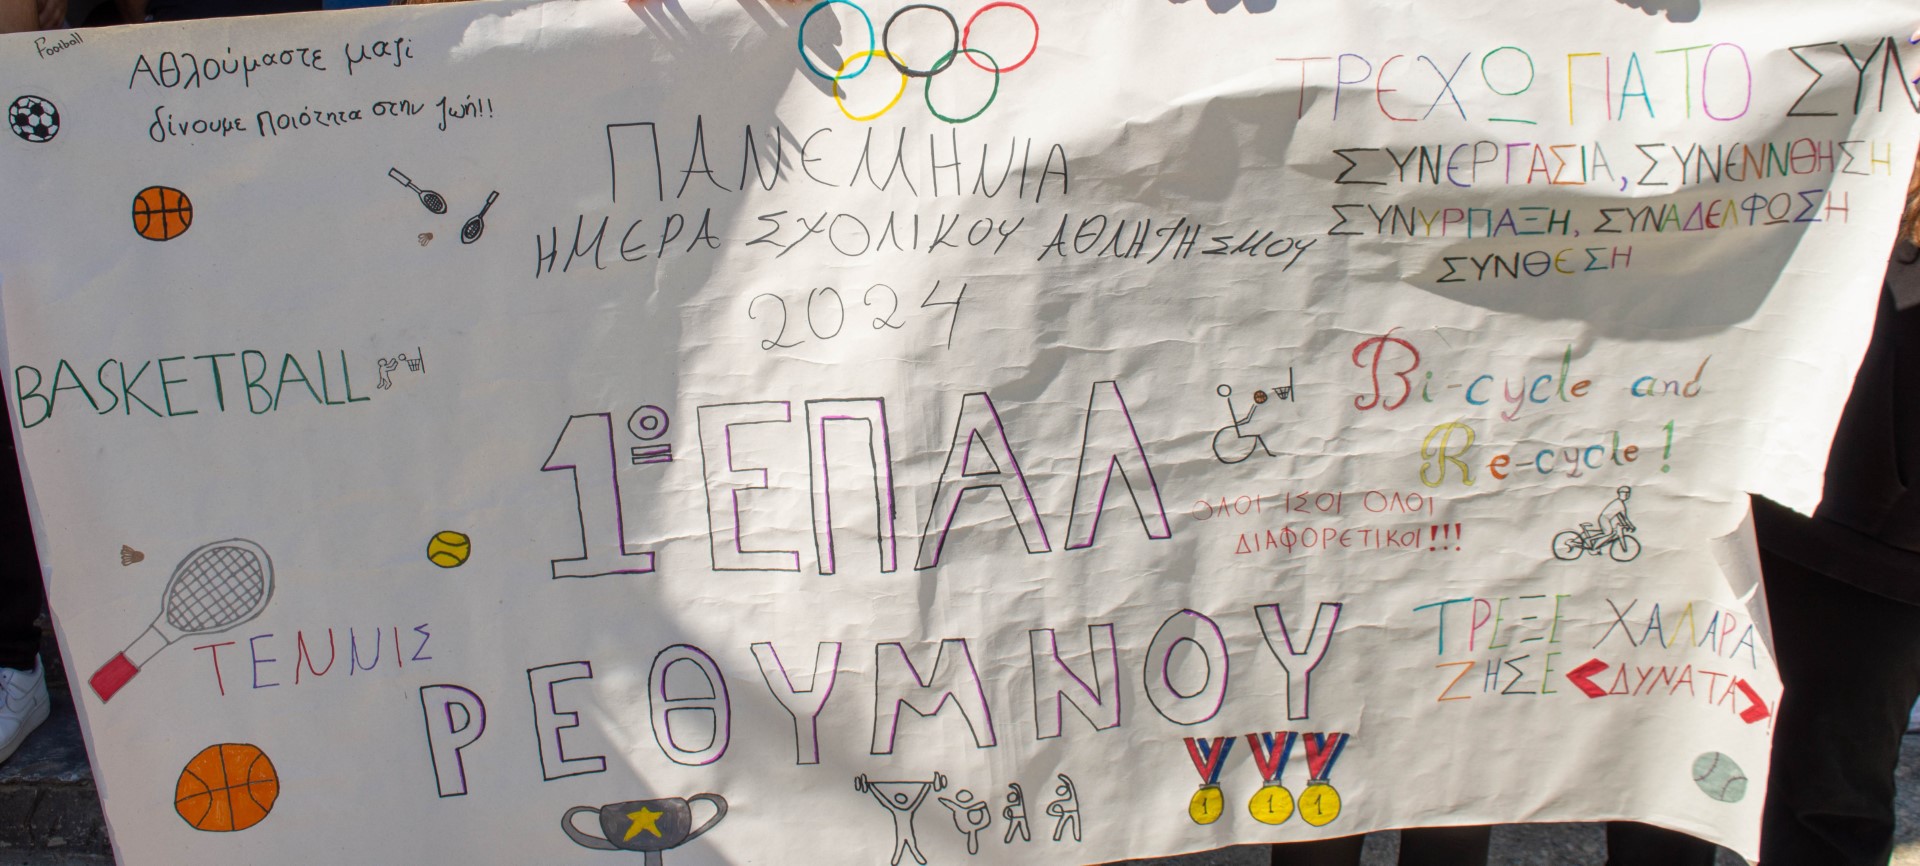 Football
Αθλούμαστε μαζί
δίνουμε ποιότητα στην ζωή!!
ΠΑΝΕΜΗΝΙΑ
ΗΜΕΡΑ ΣΧΟΛΙΚΟΥ ΑΘΛΗΤΗΣΜΟΥ
2024
ΤΡΕΧΩ ΓΙΑ ΤΟ ΣΥΝ
ΣΥΝΕΡΓΑΣΙΑ, ΣΥΝΕΝΝΘΗΣΗ
ΣΥΝΥΡΠΑΞΗ, ΣΥΝΑΔΕΛΦΩΣΗ
ΣΥΝΘΕΣΗ
BASKETBALL
1º ΕΠΑΛ
ΡΕΘΥΜΝΟΥ
Bi-cycle and
Re-cycle!
ΟΛΟΙ ΙΣΟΙ ΟΛΟΙ
ΔΙΑΦΟΡΕΤΙΚΟΙ!!!
ΤΕΝΝΙΣ
ΤΡΕΞΕ ΧΑΛΑΡΑ
ΖΗΣΕ <ΔΥΝΑΤΑ>!
1 1 1